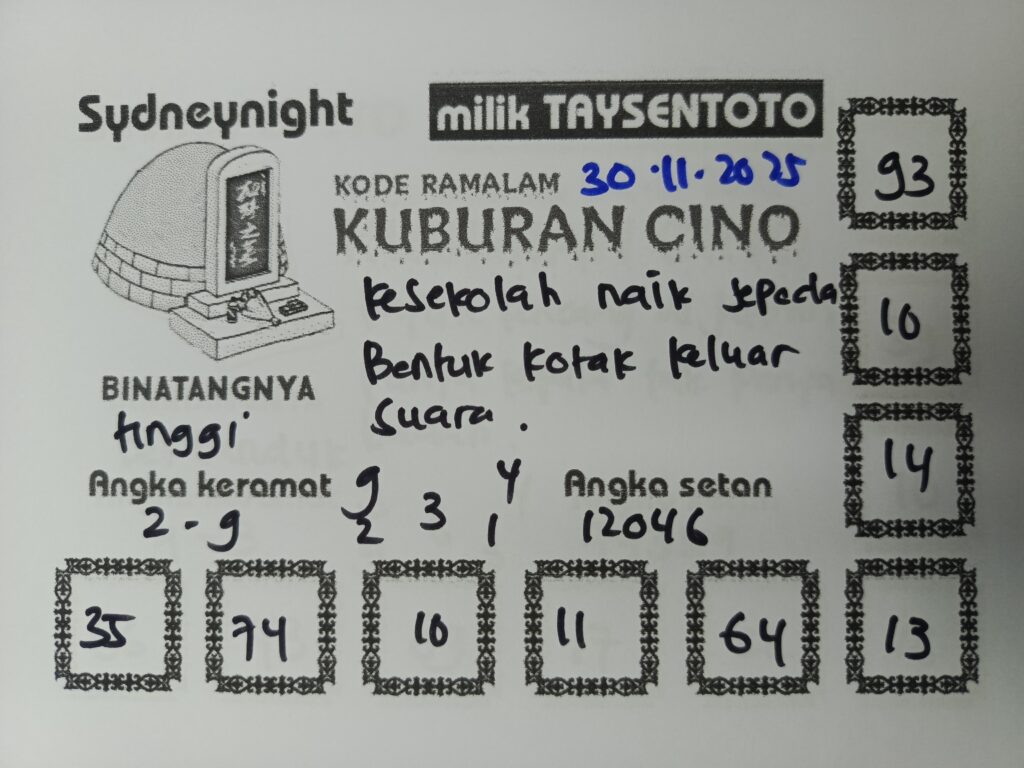 Sydneynight
milik TAYSENTOTO
KODE RAMALAM 30.11.2025
KUBURAN CINO
kesekolah naik sepeda
Bentuk kotak keluar
suara.
BINATANGNYA
tinggi
Angka keramat
2-9
9 4
3
2 1
Angka setan
12046
93
10
14
35 74 10 11 64 13